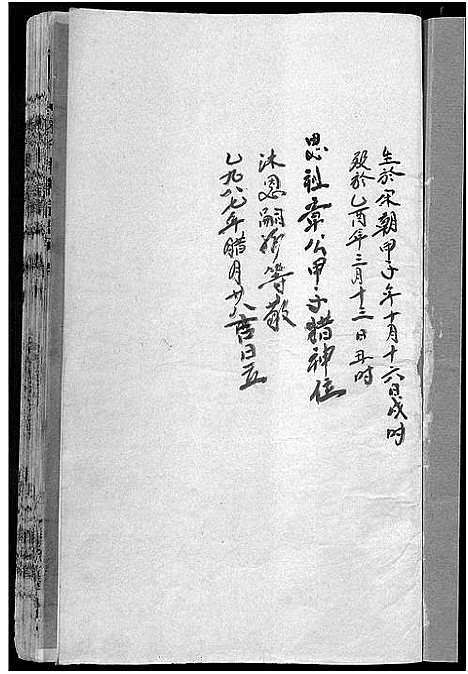 生於宋朝甲子年十月十六日戌时
殁於乙酉年三月十三日丑时
恩祖章公甲子腊神位
沐恩嗣孙等敬
一九八七年腊月廿八吉日立